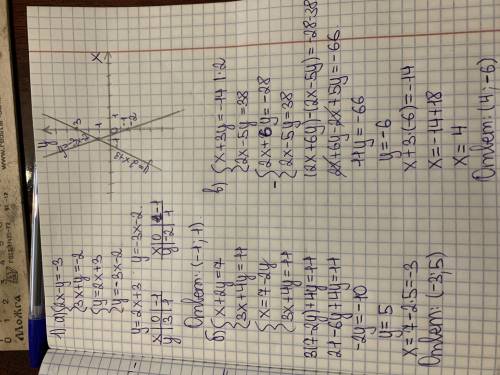 1) а) {2x-y=-3
{3x+y=-2
{y=2x+3
{y=-3x-2
y=2x+3 y=-3x-2
x|0|-1 x|0|-1
y|3|1 y|-2|1
Ответ: (-1; 1)
y
x
y=-3x-2
y=2x+3
б) {x+2y=7
{3x+4y=11
{x=7-2y
{3x+4y=11
3(7-2y)+4y=11
21-6y+4y=11
-2y=-10
y=5
x=7-2·5=-3
Ответ: (-3; 5)
в) {x+3y=-14 |·2
{2x-5y=38
-{2x+6y=-28
{2x-5y=38
(2x+6y)-(2x-5y)=-28-38
2x+6y-2x+5y=-66
11y=-66
y=-6
x+3·(-6)=-14
x=-14+18
x=4
Ответ: (4; -6)
Можга